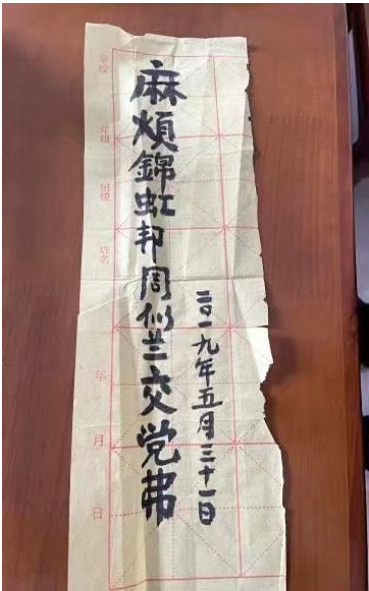 麻烦錦虹邦周似兰交党弗
二〇一九年五月三十一日
学校
年级
班级
姓名
年
月
日